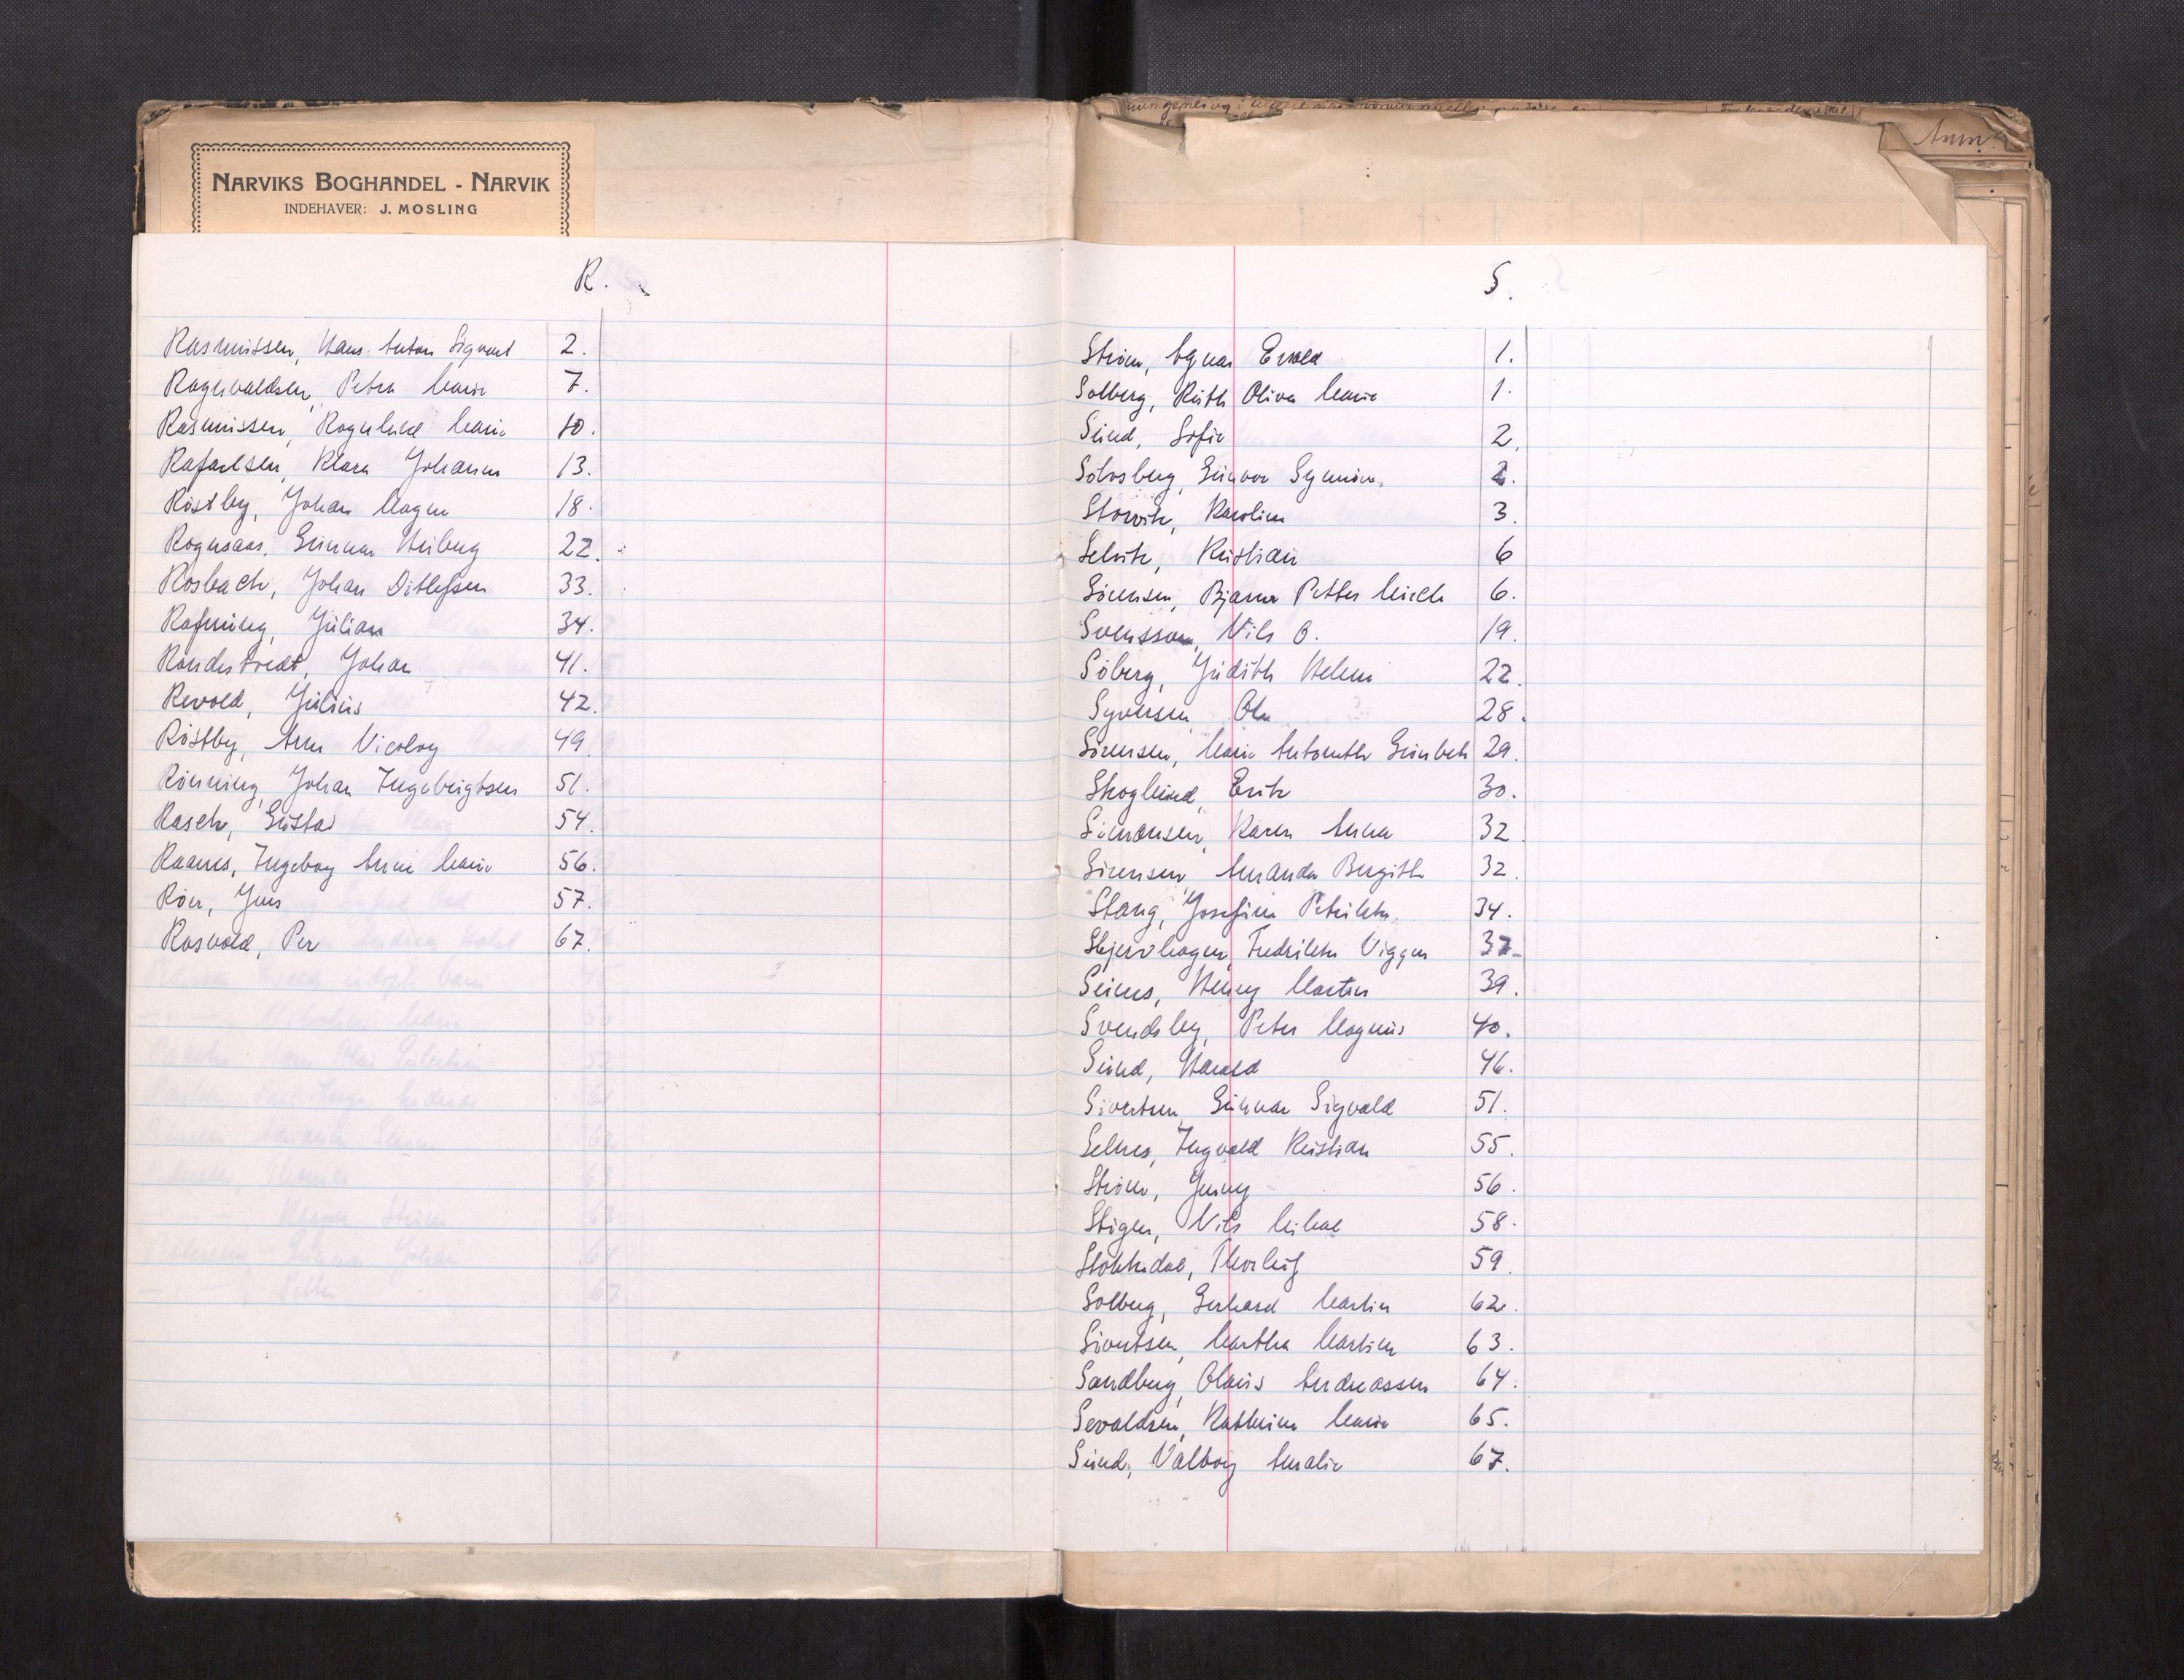 NARVIKS BOGHANDEL - NARVIK
INDEHAVER: J. MOSLING
R.
Rasmussen, Hans Anton Sigvart 2.
Ragnvaldsen, Petra Marie 7.
Rasmussen, Ragnhild Marie 10.
Rafaelsen, Klara Johanna 13.
Röstby, Johan Magnu 18.
Rognsaas, Gunnar Heiberg 22.
Rosbach, Johan Ditlefsen 33.
Julian 34.
Johan 41.
Revold, Julius 42.
Röstby, Arne Nicolay 49.
Rönning, Johan Ingebrigtsen 51.
Rasch, Gustav 54.
Ingeborg Anne Marie 56.
Röer, Jens 57.
Rosvold, Per 67.
S.
Ström, Agnar Evald 1.
Solberg, Ruth Oliva Marie 1.
Sund, Sofie 2.
Gunvor Synnöve 2.
Storvik, Karoline 3.
Selvik, Kristian 6
Sörensen, Bjarne Petter Mich 6.
Svensson, Nils O. 19.
Söberg, Judith Helene 22.
Syversen, Ola 28.
Sörensen, Marie Antonette 29.
Skoglund, Erik 30.
Simonsen, Karen Anna 32
Sörensen, Amanda Bergitte 32.
Stang, Josefine Petrikke 34.
Skjervhagen, Fredrikke Viggen 37.
Henny Martin 39.
Svendsby, Peter Magnus 40.
Sund, Harald 46.
Sivertsen, Gunnar Sigvald 51.
Selnes, Ingvald Kristian 55.
Ström, Jenny 56.
Stigen, Nils Mikal 58.
Stokkedal, Thorleif 59.
Solberg, Gerhard Martin 62.
Sivertsen, Martha Martine 63.
Sandberg, Olaus Andreassen 64.
Sevaldsen, Kathrine Marie 65.
Sund, Valborg Amalie 67.